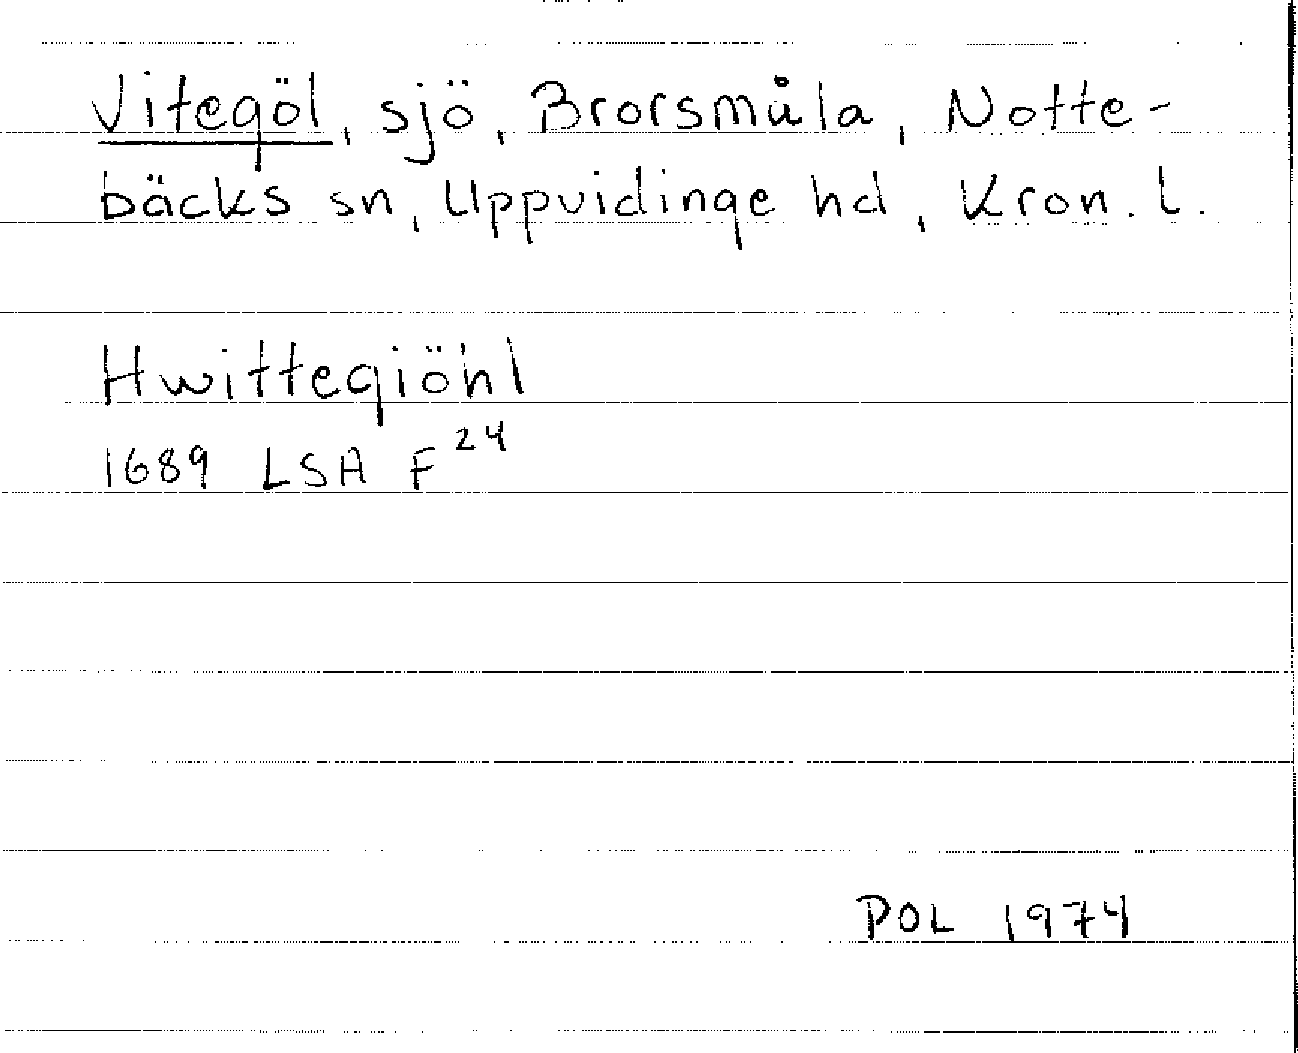 Vitegöl, sjö, Brorsmåla, Notte-
bäcks sn, Uppvidinge hd, Kron. l.
Hwittegiöhl
1689 LSA F 24
POL 1974